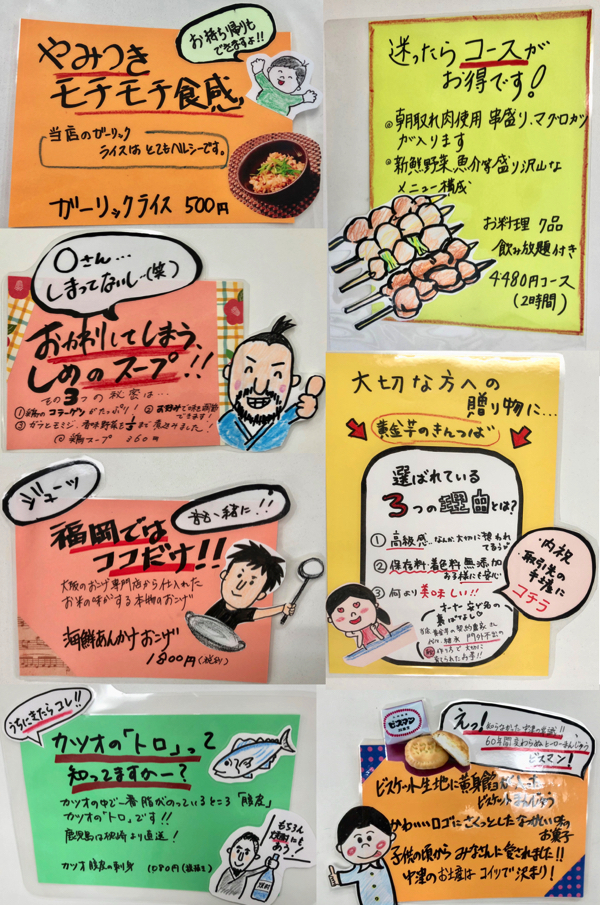 お持ち帰りも
できますよ!!
やみつき
モチモチ食感
当店のガーリック
ライスは とてもヘルシーです。
ガーリックライス 500円
迷ったら コースが
お得です!
◎朝取れ肉使用 串盛り、マグロカツ
が入ります
◎新鮮野菜 魚介等盛り沢山な
メニュー構成
お料理 7品
飲み放題付き
4480円コース
(2時間)
〇さん…
しまってないし…(笑)
おかわりしてしまう、
しめのスープ!!
その3つの秘密は…
①鶏のコラーゲンがたっぷり! ②お好みで味を調節
できます!
③ガラとモミジ、香味野菜を
まで煮込みました!
@鶏スープ 360円
ジューッ
音も一緒に!!
福岡では
ココだけ!!
大阪のおこげ専門店から仕入れた
お米の味がする本物のおこげ
海鮮あんかけおこげ
1800円(税別)
大切な方への
贈り物に…
黄金芋のきんつば
選ばれている
3つの理由とは?
① 高級感…なんか、大切に想われ
てるぅ
② 保存料・着色料 無添加
お子様にも安心
③ 何より美味しい!!
・内祝
・取引先の
手渡に
コチラ
うちにきたらコレ!!
カツオの「トロ」って
知ってますかー?
カツオの中で一番脂がのっているところ「腹皮」
カツオの「トロ」です!!
鹿児島は枕崎より直送!
もちろん
焼酎にも
あう!
カツオ腹皮の刺身 1080円(税抜き)
ビスマン
えっ!
60年間変わらぬヒーローまんじゅう
ビスマン!
ビスケット生地に黄身餡
ビスケットまんじゅう
かわいいロゴにさくっとしたなつかしい味の
お菓子
子供の頃からみなさんに愛されました!!
中津のお土産はコイツで決まり!